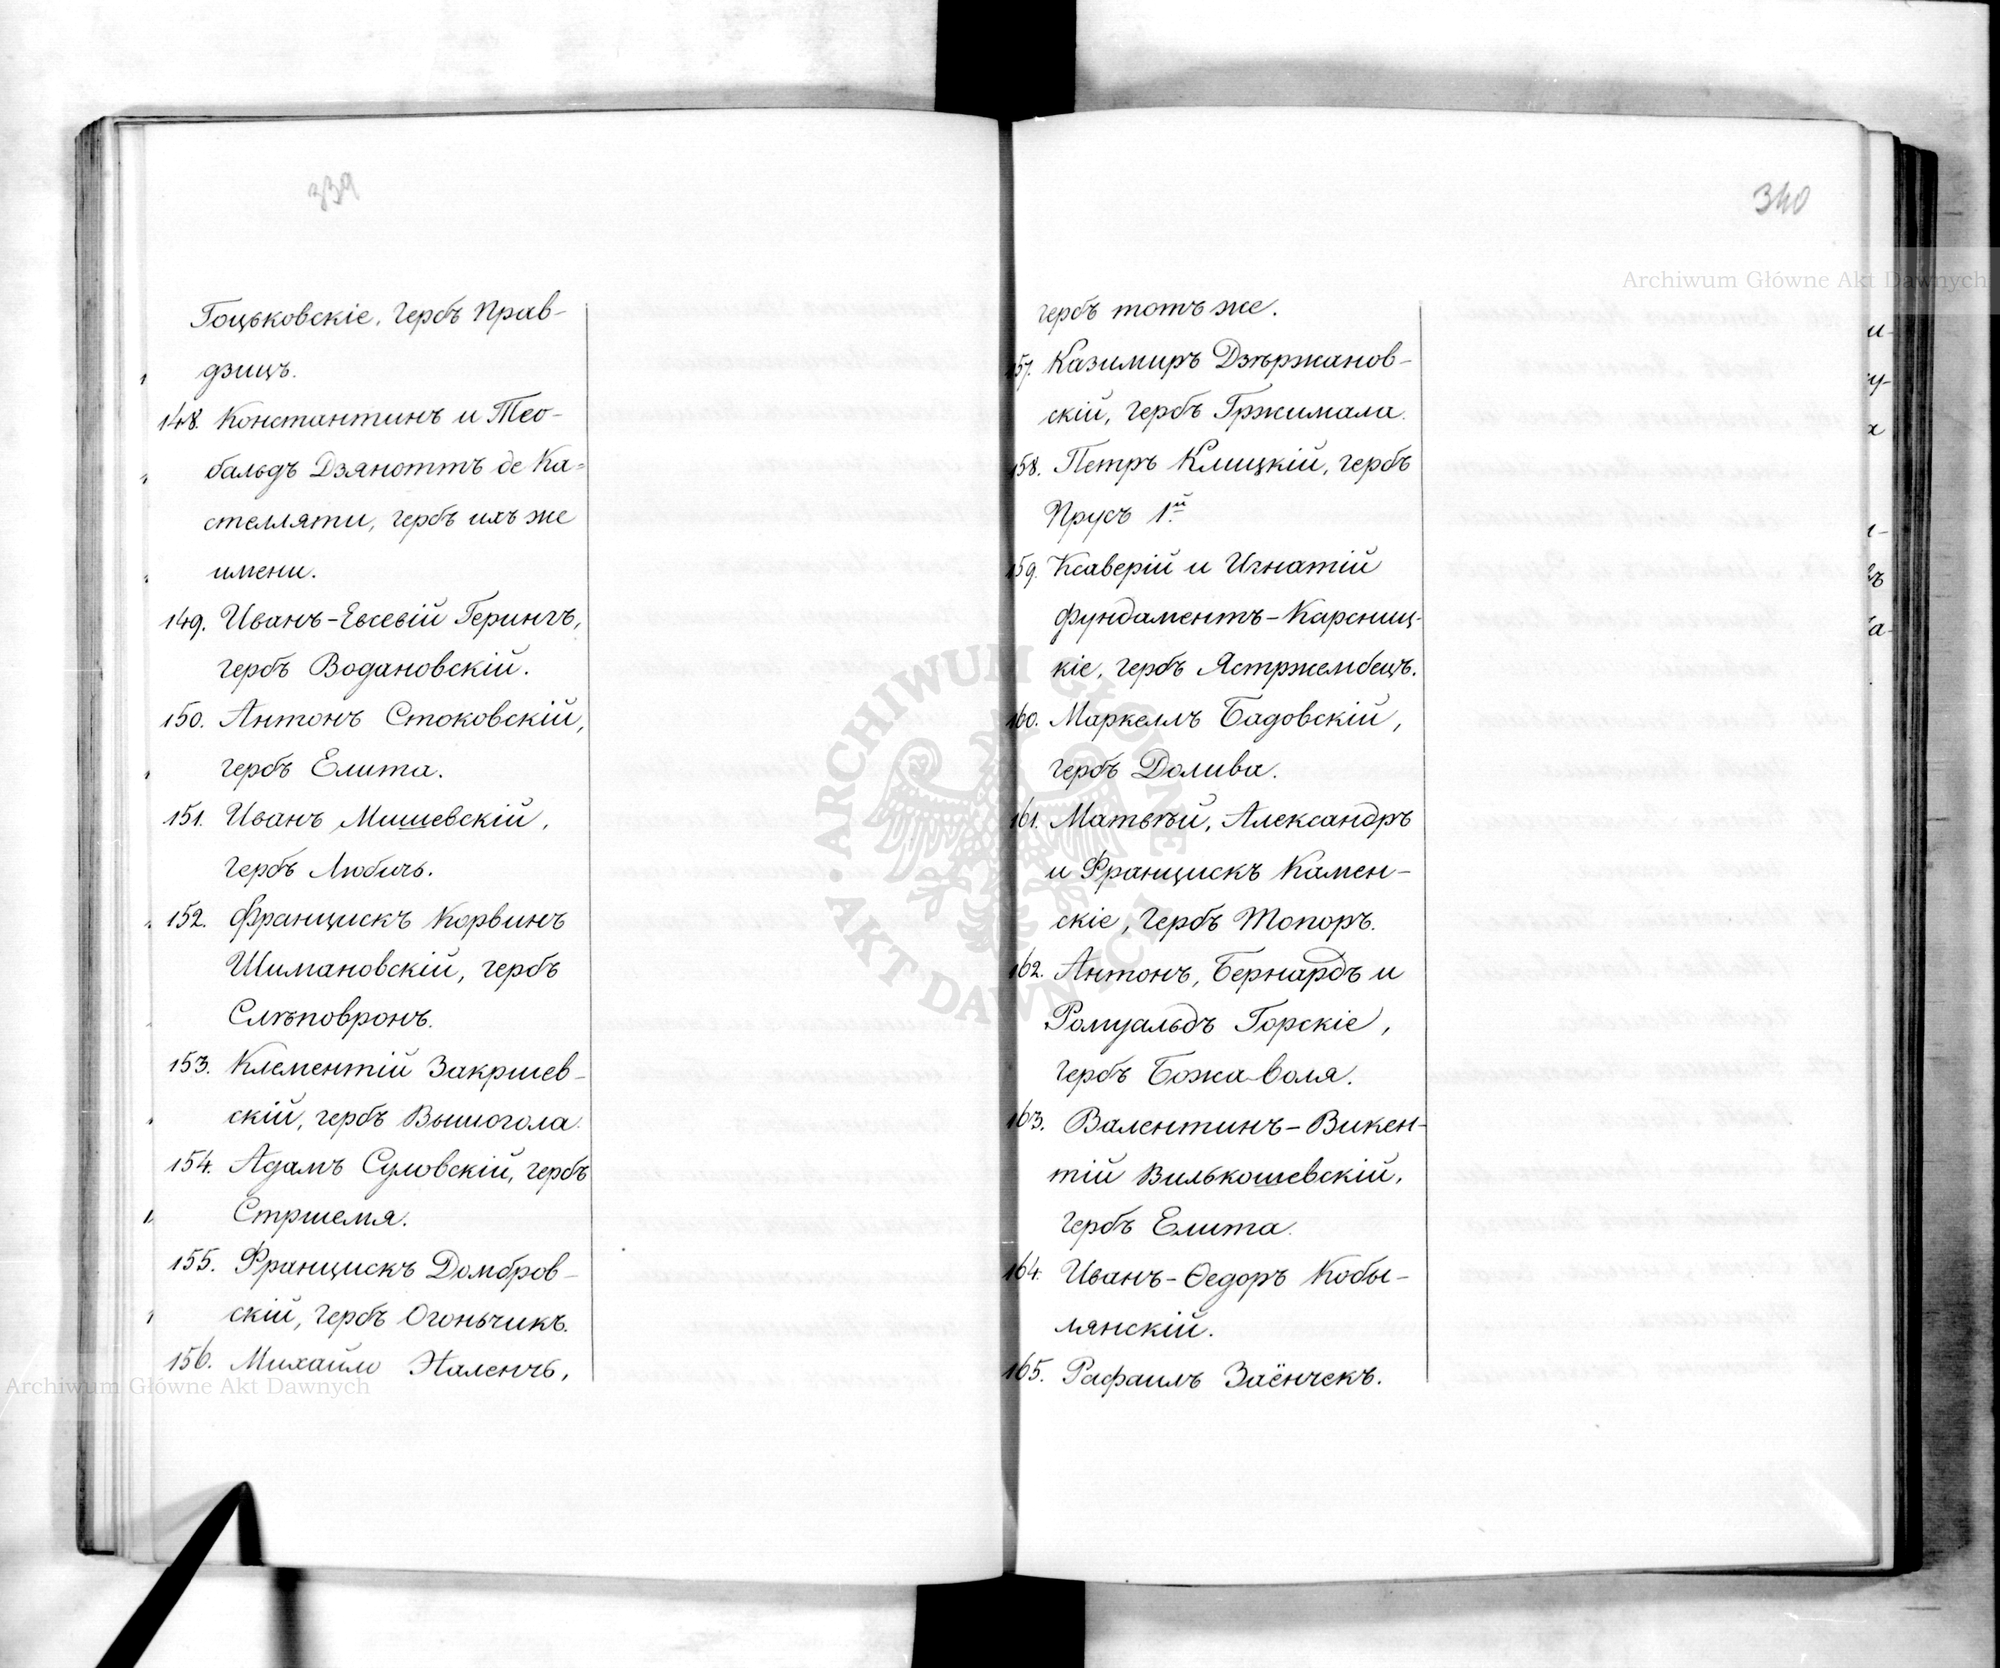 339
Гоцьковскіе, гербъ Прав-
дзицъ.
148. Константинъ и Тео-
бальдъ Дзяноттъ де Ка=
стелляти, гербъ ихъ же
имени.
149. Иванъ-Евсевій Герингъ,
гербъ Водановскій.
150. Антонъ Стоковскій,
гербъ Елита.
151. Иванъ Мишевскій,
гербъ Любичъ.
152. Францискъ Корвинъ
Шимановскій, гербъ
Слѣповронъ.
153. Клементій Закршев-
скій, гербъ Вышогола.
154. Адамъ Суловскій, гербъ
Стршемя.
155. Францискъ Домбров-
скій, гербъ Огоньчикъ.
156. Михаилъ Наленчъ,
340
гербъ тотъ же.
157. Казимиръ Дзѣржанов-
скій, гербъ Гржимала.
158. Петръ Клицкій, гербъ
Прусъ 1й
159. Ксаверій и Игнатій
Фундаментъ-Карсниц-
кіе, гербъ Ястржембецъ.
160. Маркеллъ Бадовскій,
гербъ Долива.
161. Матвѣй, Александръ
и Францискъ Камен-
скіе, гербъ Топоръ.
162. Антонъ, Бернардъ и
Ромуальдъ Горскіе,
гербъ Божаволя.
163. Валентинъ-Викен-
тій Вилькошевскій,
гербъ Елита.
164. Иванъ-Ѳедоръ Кобы-
лянскій.
165. Рафаилъ Заёнчекъ.
Archiwum Główne Akt Dawnych
Archiwum Główne Akt Dawnych